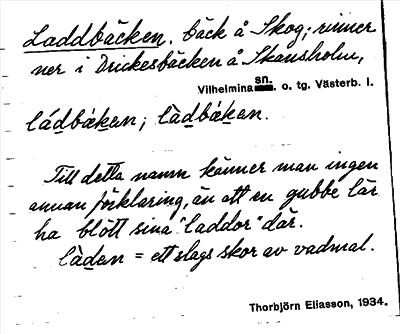 Laddbäcken. Bäck å Skog; rinner
ner i Drickesbäcken å Skansholm,
sn.
Vilhelmina o. tg. Västerb. l.
lád̲bǽk̲en; lȧ̀d̲bǽk̲en.
Till detta namn känner man ingen
annan förklaring, än att en gubbe lär
ha blött sina "laddor" där.
lȧ̀d̲en = ett slags skor av vadmal.
Thorbjörn Eliasson, 1934.